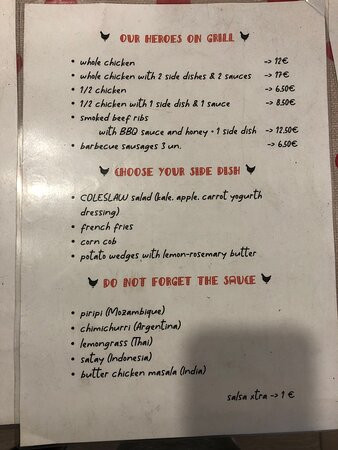 OUR HEROES ON GRILL
• whole chicken -> 12€
• whole chicken with 2 side dishes & 2 sauces -> 17€
• 1/2 chicken -> 6.50€
• 1/2 chicken with 1 side dish & 1 sauce -> 8.50€
• smoked beef ribs
with BBQ sauce and honey + 1 side dish -> 12.50€
• barbecue sausages 3 un. -> 6.50€
CHOOSE YOUR SIDE DISH
• COLESLAW salad (kale, apple, carrot yogurth
dressing)
• french fries
• corn cob
• potato wedges with lemon-rosemary butter
DO NOT FORGET THE SAUCE
• piripi (Mozambique)
• chimichurri (Argentina)
• lemongrass (Thai)
• satay (Indonesia)
• butter chicken masala (India)
salsa xtra -> 1 €